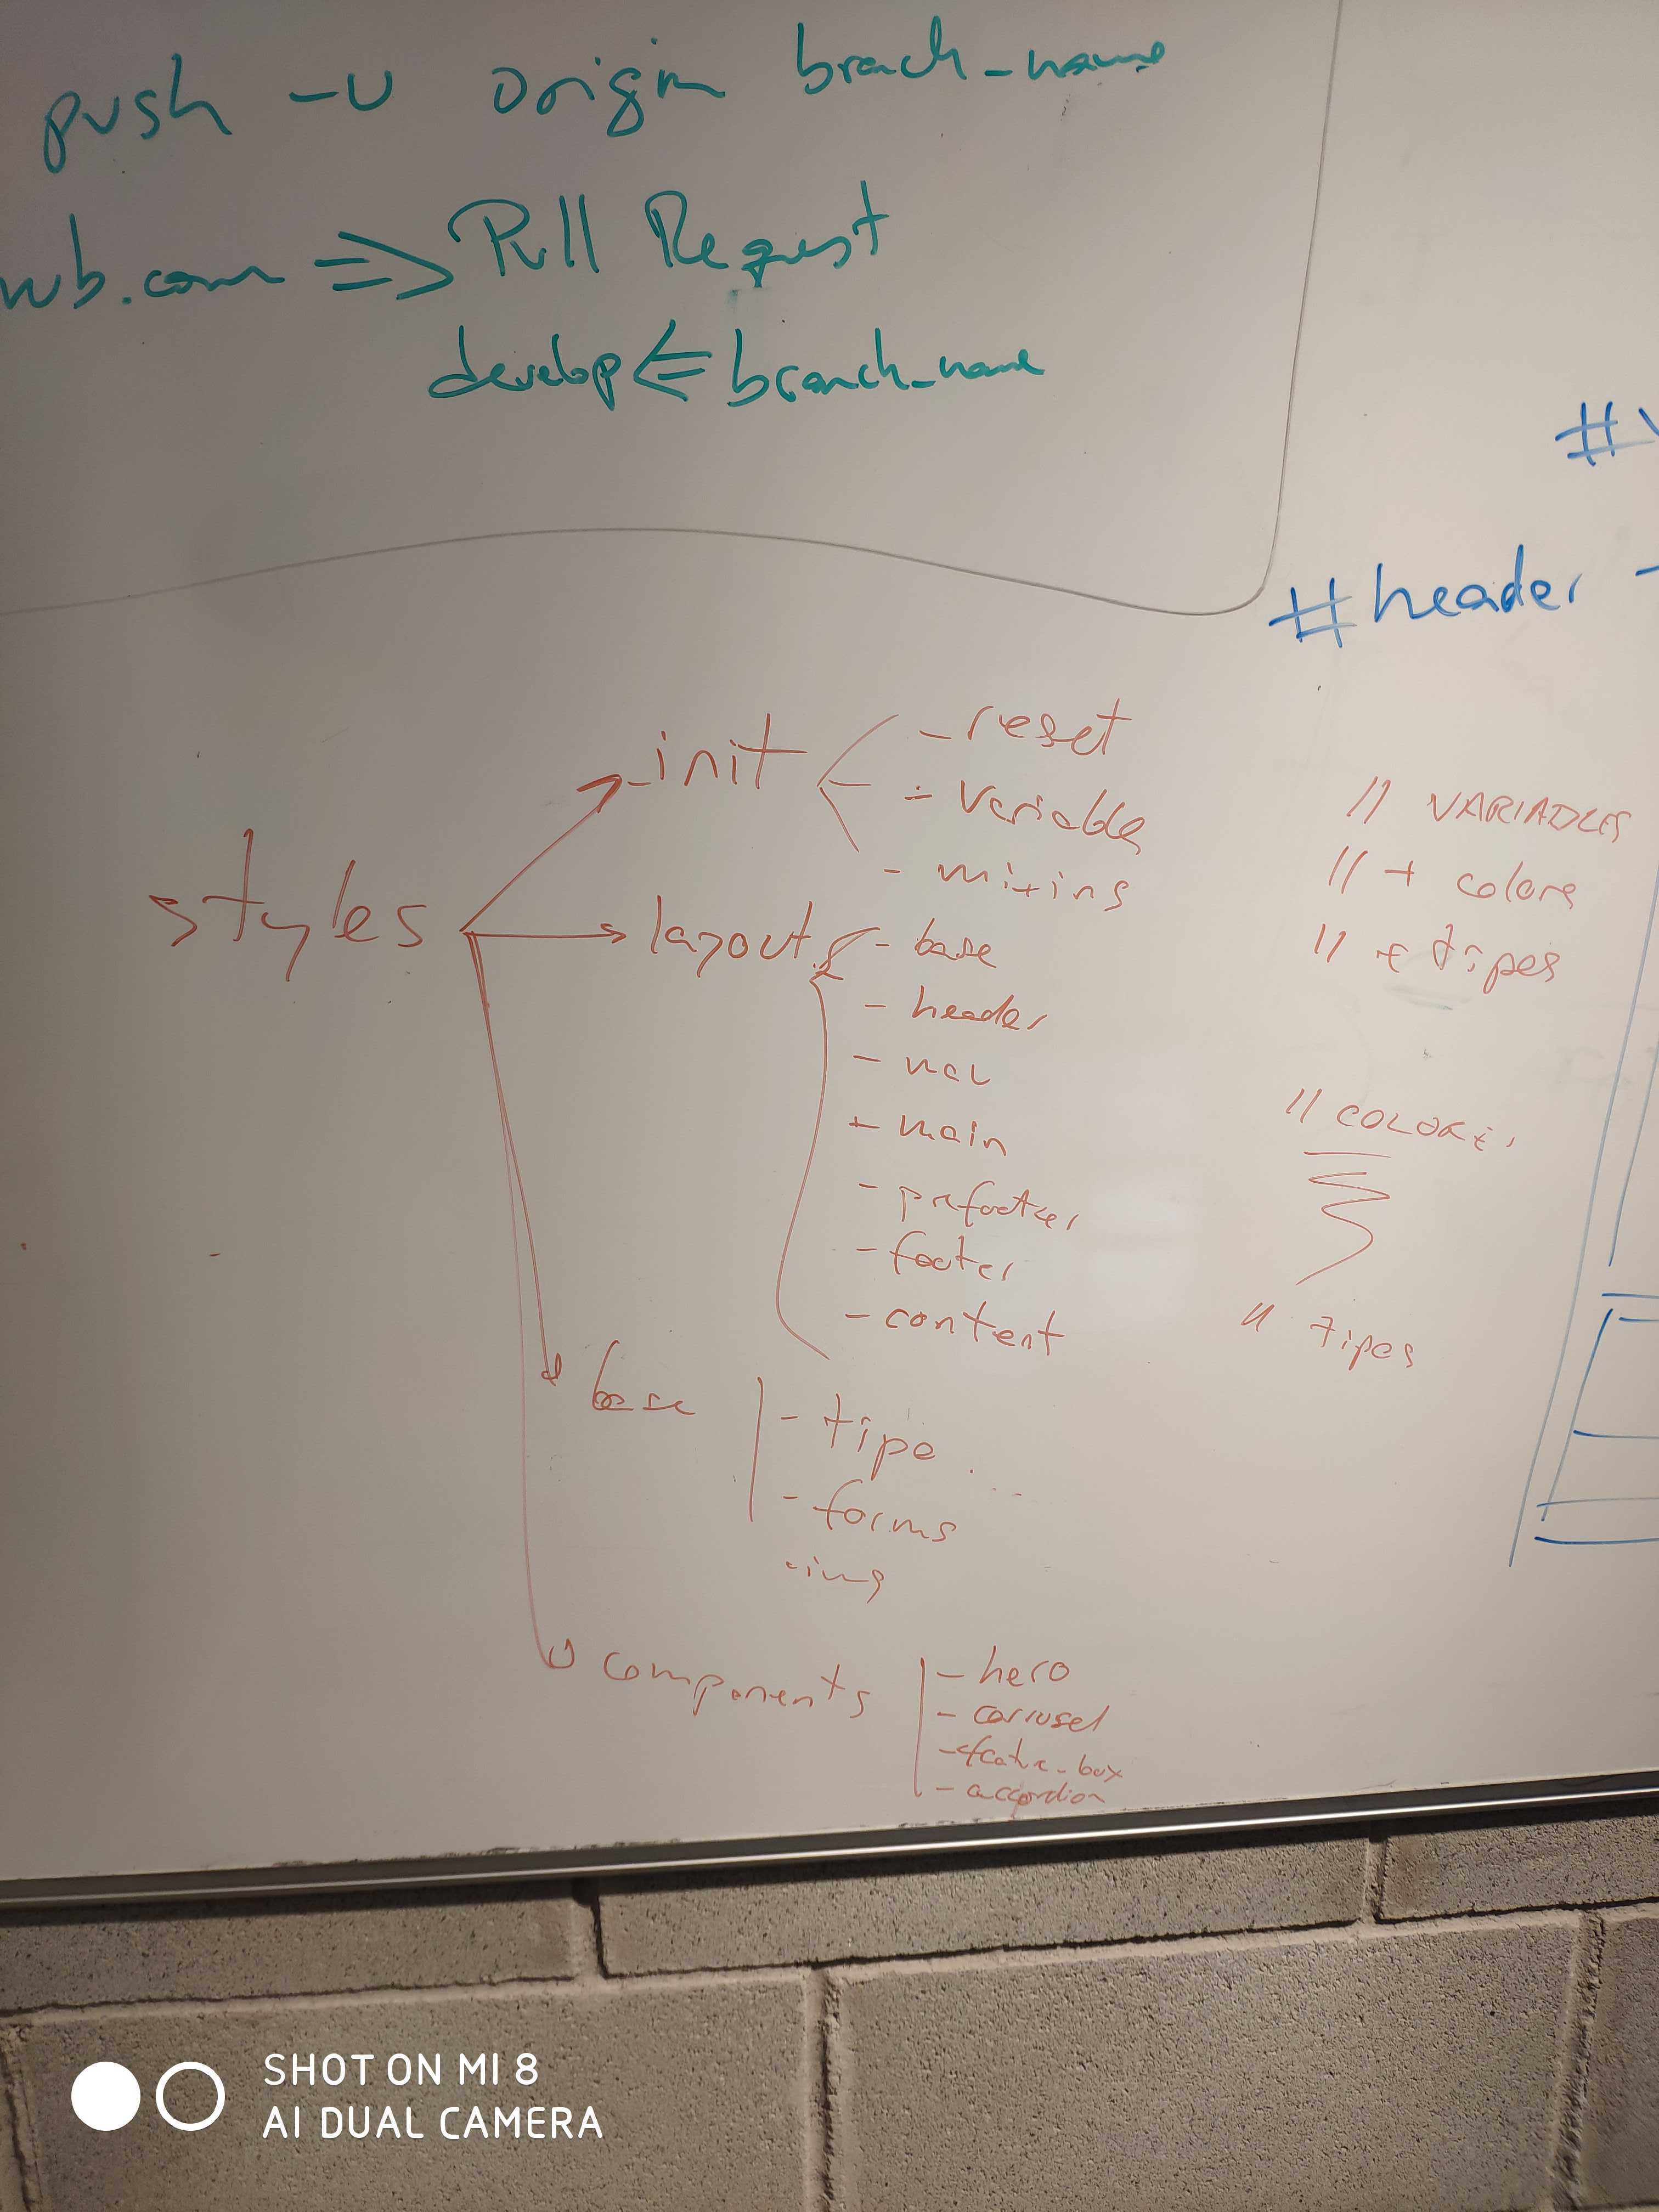 push -u origin branch_name
hub.com => Pull Request
develop <= branch_name
#header -
styles
init
- reset
- variables
- mixins
layout
- base
- header
- nav
- main
- prefooter
- footer
- content
base
- tipo
- forms
- img
components
- hero
- carrusel
- feature_box
- accordion
// VARIABLES
// + colors
// + tipos
// COLORES
// tipos
SHOT ON MI 8
AI DUAL CAMERA